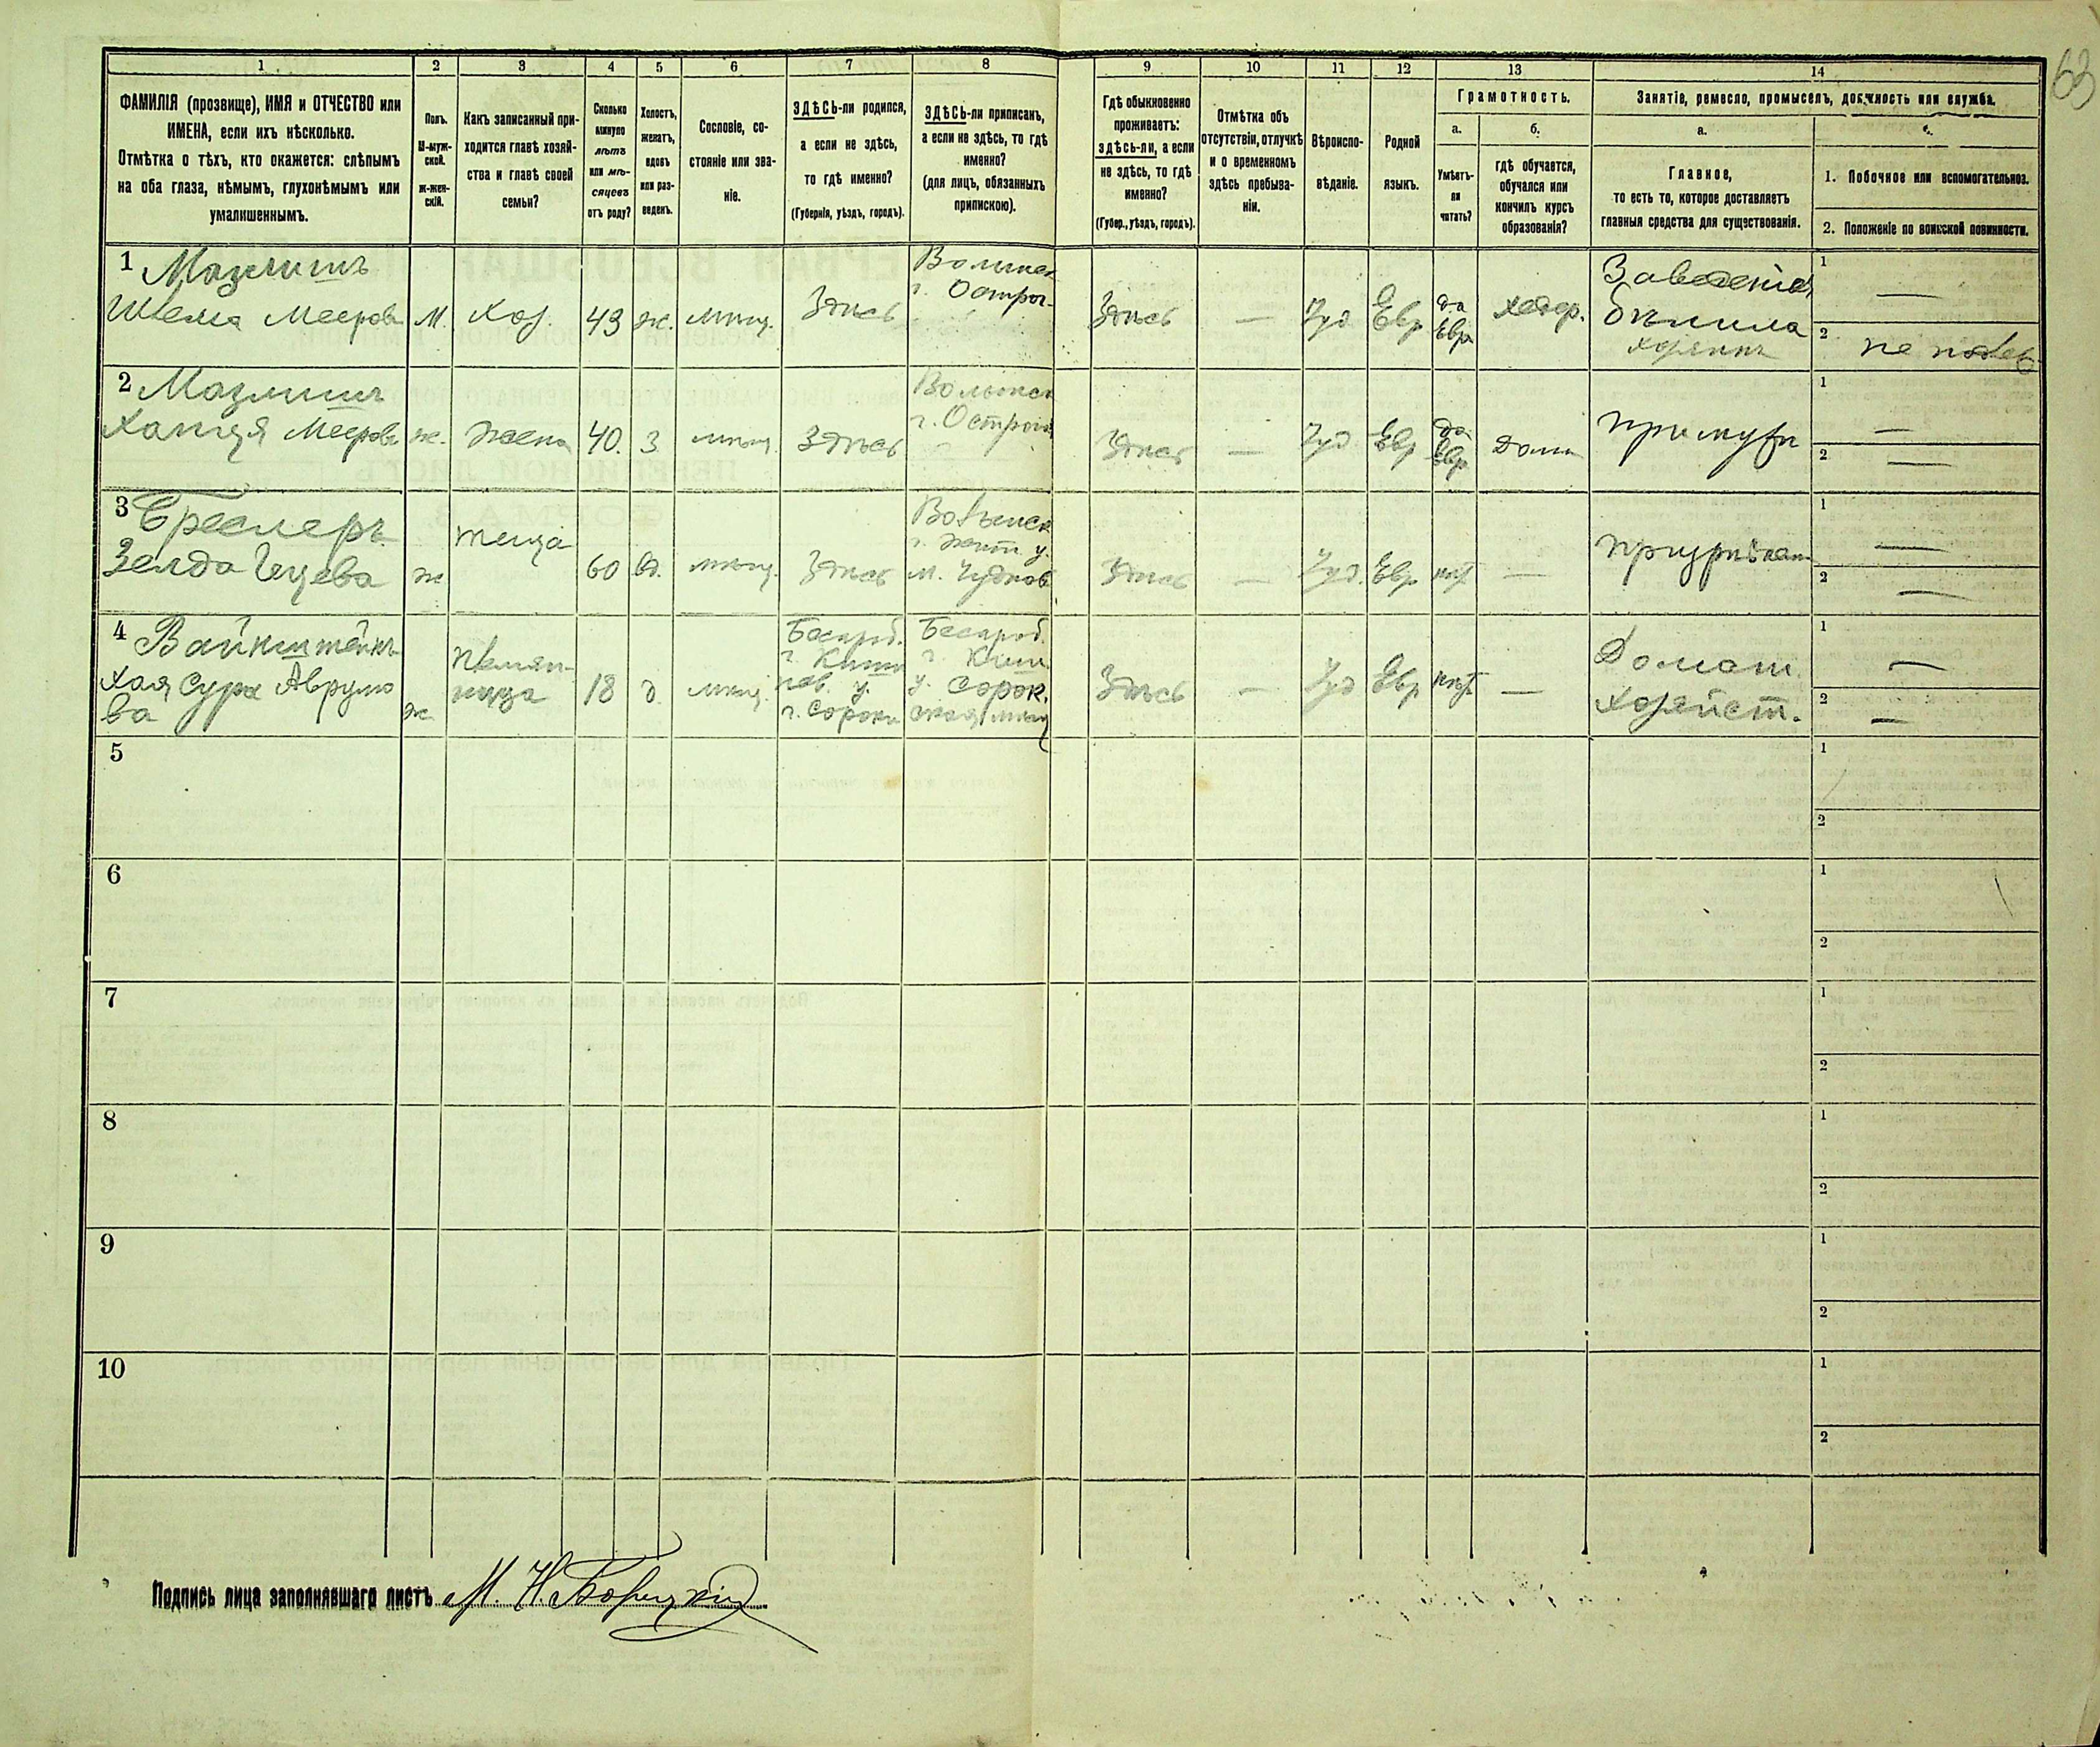 63
1 2 3 4 5 6 7 8 9 10 11 12 13 14
ФАМИЛІЯ (прозвище), ИМЯ и ОТЧЕСТВО или
ИМЕНА, если ихъ нѣсколько.
Отмѣтка о тѣхъ, кто окажется: слѣпымъ
на оба глаза, нѣмымъ, глухонѣмымъ или
умалишеннымъ.
Полъ.
М-муж-
ской.
ж-жен-
скій.
Какъ записанный при-
ходится главѣ хозяй-
ства и главѣ своей
семьи?
Сколько
минуло
лѣтъ
или мѣ-
сяцевъ
отъ роду?
Холостъ,
женатъ,
вдовъ
или раз-
веденъ.
Сословіе, со-
стояніе или зва-
ніе.
ЗДѢСЬ-ли родился,
а если не здѣсь,
то гдѣ именно?
(Губернія, уѣздъ, городъ).
ЗДѢСЬ-ли приписанъ,
а если не здѣсь, то гдѣ
именно?
(для лицъ, обязанныхъ
припискою).
Гдѣ обыкновенно
проживаетъ:
здѣсь-ли, а если
не здѣсь, то гдѣ
именно?
(Губер., уѣздъ, городъ).
Отмѣтка объ
отсутствіи, отлучкѣ
и о временномъ
здѣсь пребыва-
ніи.
Вѣроиспо-
вѣданіе.
Родной
языкъ.
Грамотность.
а.
Умѣетъ-
ли
читать?
б.
гдѣ обучается,
обучался или
кончилъ курсъ
образованія?
Занятіе, ремесло, промыселъ, должность или служба.
а.
Главное,
то есть то, которое доставляетъ
главныя средства для существованія.
1. Побочное или вспомогательное.
2. Положеніе по воинской повинности.
1 Мазлишъ
Шлема Мееров
М. Хоз. 43 ж. мѣщ. Здѣсь
Волынск
г. Острог.
Здѣсь — Іуд Евр
да
Евр
хедер.
Заведенія
бѣлила
хозяинъ
1 —
2 не подлеж
2 Мазлишъ
Ханця Меерова
ж. жена 40. З. мѣщ. Здѣсь
Волынск
г. Острога
Здѣсь — Іуд Евр
да
Евр
дома
при мужѣ
1 —
2 —
3 Бреслеръ
Зелда Ицева
ж теща 60 вд. мѣщ. Здѣсь
Волынск
г. Жит. у.
м. Чуднов
Здѣсь — Іуд. Евр нѣт —
при
1 —
2 —
4 Вайнштейнъ
Хая Сура Аврумо
ва
ж
племян-
ница
18 д. мѣщ.
Бесараб.
г. Киши
нев. у.
г. Сороки
Бесараб.
г. Киш.
у. Сорок.
ская мѣщ
Здѣсь — Іуд Евр нѣт —
Домаш.
хозяйст.
1 —
2 —
5 1
2
6 1
2
7 1
2
8 1
2
9 1
2
10 1
2
Подпись лица заполнявшаго листъ М. Н.